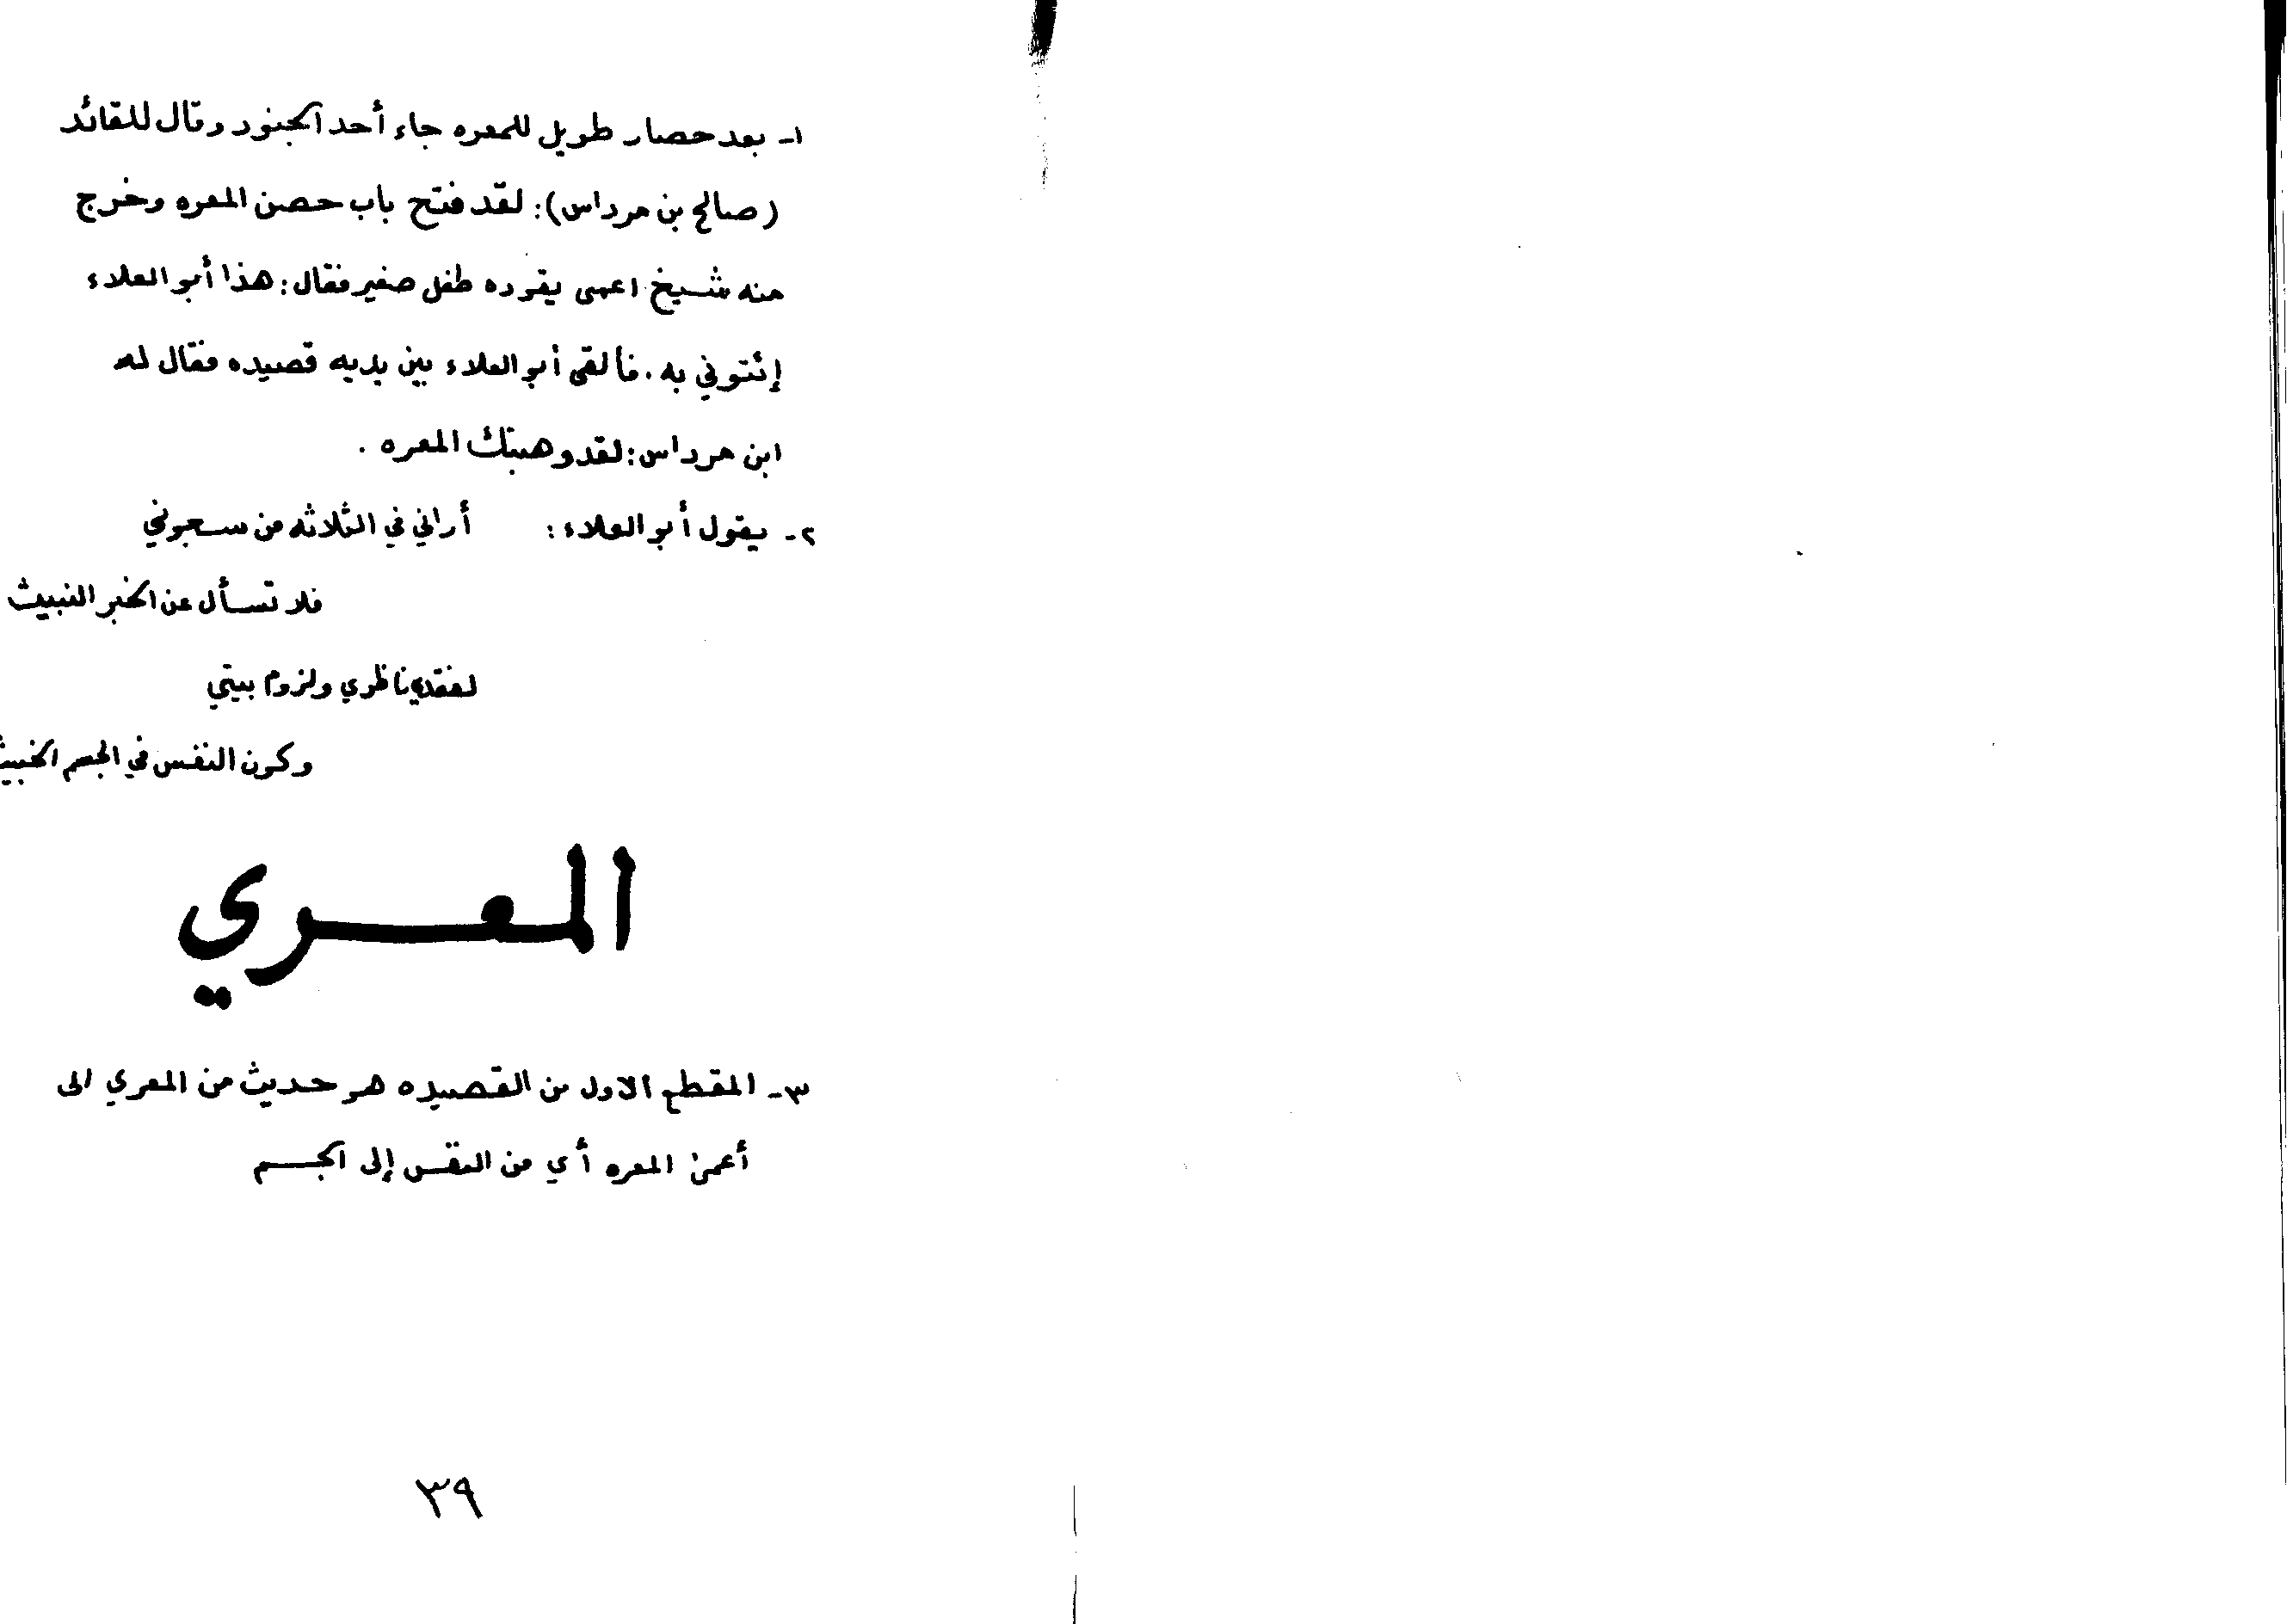 ١- بعد حصار طويل للمعره جاء أحد الجنود وقال للقائد
(صالح بن مرداس): لقد فتح باب حصن المعره وخرج
منه شيخ اعمى يقوده طفل صغير فقال: هذا أبو العلاء
إئتوني به. فألقى أبو العلاء بين يديه قصيده فقال له
ابن مرداس: لقد وهبتك المعره.
٢- يقول أبو العلاء: أراني في الثلاثه من سجوني
فلا تسأل عن الخبر النبيث
لفقدي ناظري ولزوم بيتي
وكون النفس في الجسم الخبيث
المعري
٣- المقطع الاول من القصيده هو حديث من المعري الى
أعمى المعره أي من النفس إلى الجسم
٣٩